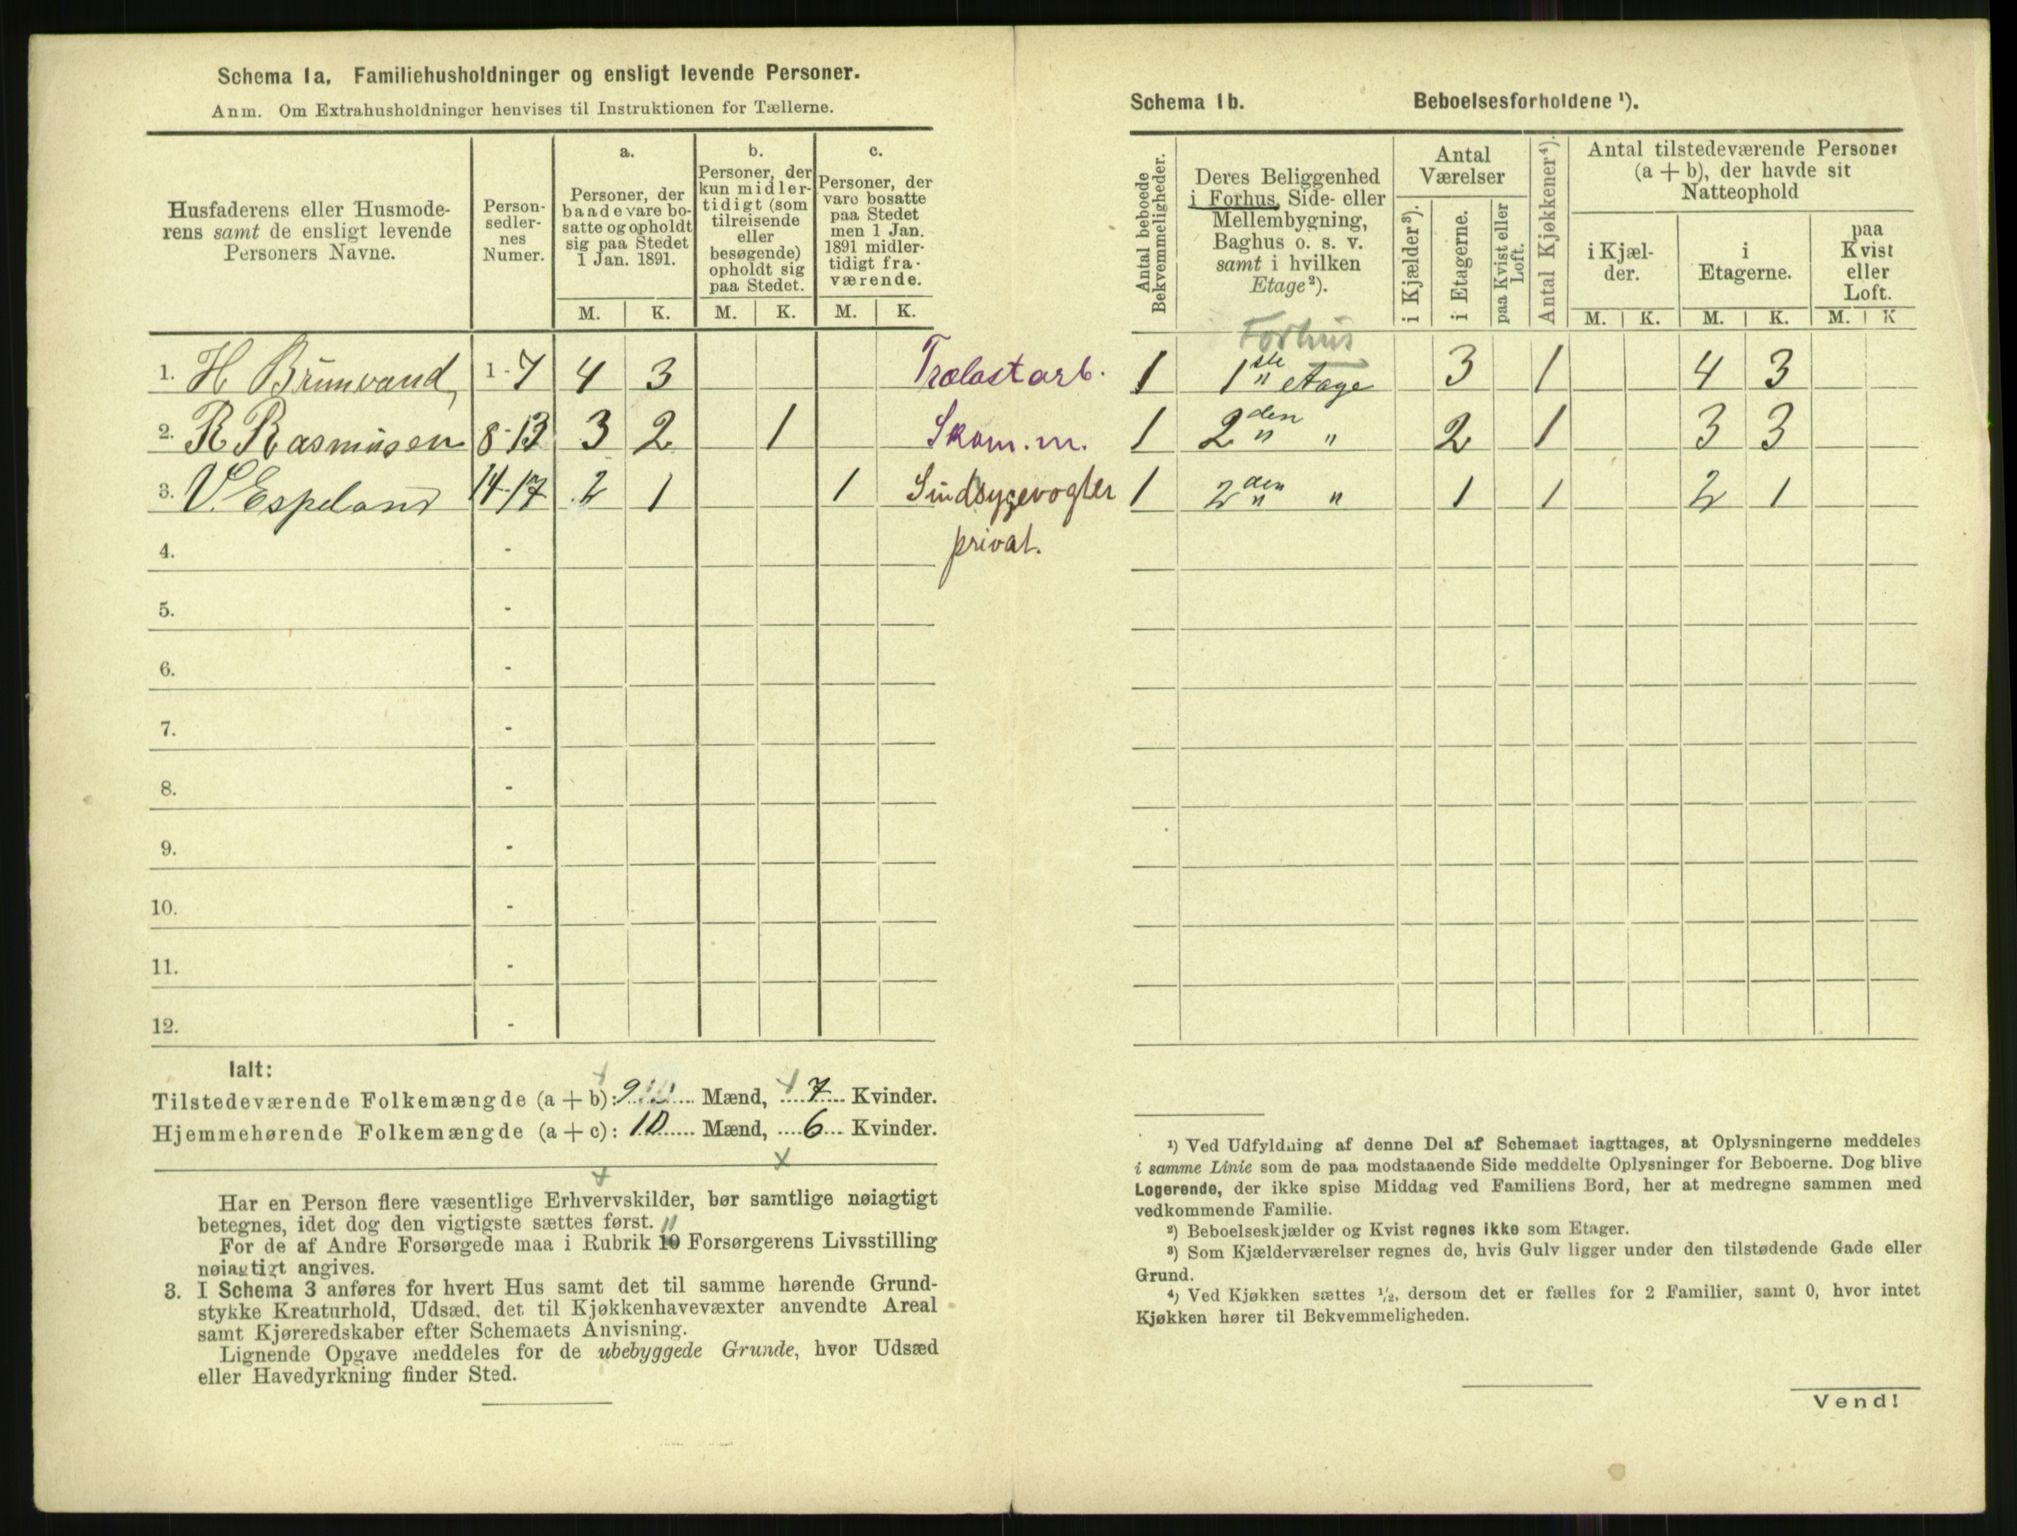 Schema 1a. Familiehusholdninger og ensligt levende Personer.
Anm. Om Extrahusholdninger henvises til Instruktionen for Tællerne.
Husfaderens eller Husmode-
rens samt de ensligt levende
Personers Navne.
Person-
sedler-
nes
Numer.
a.
Personer, der
baade vare bo-
satte og opholdt
sig paa Stedet
1 Jan. 1891.
b.
Personer, der
kun midler-
tidigt (som
tilreisende
eller
besøgende)
opholdt sig
paa Stedet.
c.
Personer, der
vare bosatte
paa Stedet
men 1 Jan.
1891 midler-
tidigt fra-
værende.
M. K. M. K. M. K.
1. H Brunvand, 1-7 4 3 Trælastarb.
2. R Rasmusen 8-13 3 2 1 Skom. m.
3. V. Espeland 14-17 2 1 1 Sindsygevogter
privat.
4. -
5. -
6. -
7. -
8. -
9. -
10. -
11. -
12. -
Ialt:
Tilstedeværende Folkemængde (a + b): 9 Mænd, 7 Kvinder.
Hjemmehørende Folkemængde (a + c): 10 Mænd, 6 Kvinder.
Har en Person flere væsentlige Erhvervskilder, bør samtlige nøiagtigt
betegnes, idet dog den vigtigste sættes først.
For de af Andre Forsørgede maa i Rubrik 10 11 Forsørgerens Livsstilling
nøiagtigt angives.
3. I Schema 3 anføres for hvert Hus samt det til samme hørende Grund-
stykke Kreaturhold, Udsæd, det til Kjøkkenhavevæxter anvendte Areal
samt Kjøreredskaber efter Schemaets Anvisning.
Lignende Opgave meddeles for de ubebyggede Grunde, hvor Udsæd
eller Havedyrkning finder Sted.
Schema 1b. Beboelsesforholdene ¹).
Antal beboede
Bekvemmeligheder.
Deres Beliggenhed
i Forhus, Side- eller
Mellembygning,
Baghus o. s. v.
samt i hvilken
Etage²).
Antal
Værelser
i Kjælder³).
i Etagerne.
paa Kvist eller
Loft.
Antal Kjøkkener⁴).
Antal tilstedeværende Personer
(a + b), der havde sit
Natteophold
i Kjæl-
der.
i
Etagerne.
paa
Kvist
eller
Loft.
M. K. M. K. M. K
Forhus
1 1ste Etage 3 1 4 3
1 2den " 2 1 3 3
1 2den " 1 1 2 1
¹) Ved Udfyldning af denne Del af Schemaet iagttages, at Oplysningerne meddeles
i samme Linie som de paa modstaaende Side meddelte Oplysninger for Beboerne. Dog blive
Logerende, der ikke spise Middag ved Familiens Bord, her at medregne sammen med
vedkommende Familie.
²) Beboelseskjælder og Kvist regnes ikke som Etager.
³) Som Kjælderværelser regnes de, hvis Gulv ligger under den tilstødende Gade eller
Grund.
⁴) Ved Kjøkken sættes ½, dersom det er fælles for 2 Familier, samt 0, hvor intet
Kjøkken hører til Bekvemmeligheden.
Vend!